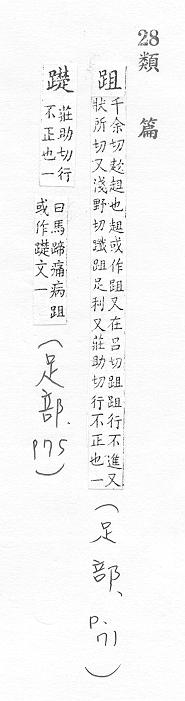 28類
篇
跙
千余切趑趄也趄或作跙又在呂切跙跙行不進又
狀所切又淺野切蹴跙足利又莊助切行不正也一
(足部、p.71)
䠂
莊助切行
不正也一
曰馬蹄痛病跙
或作䠂文一
(足部、P75)